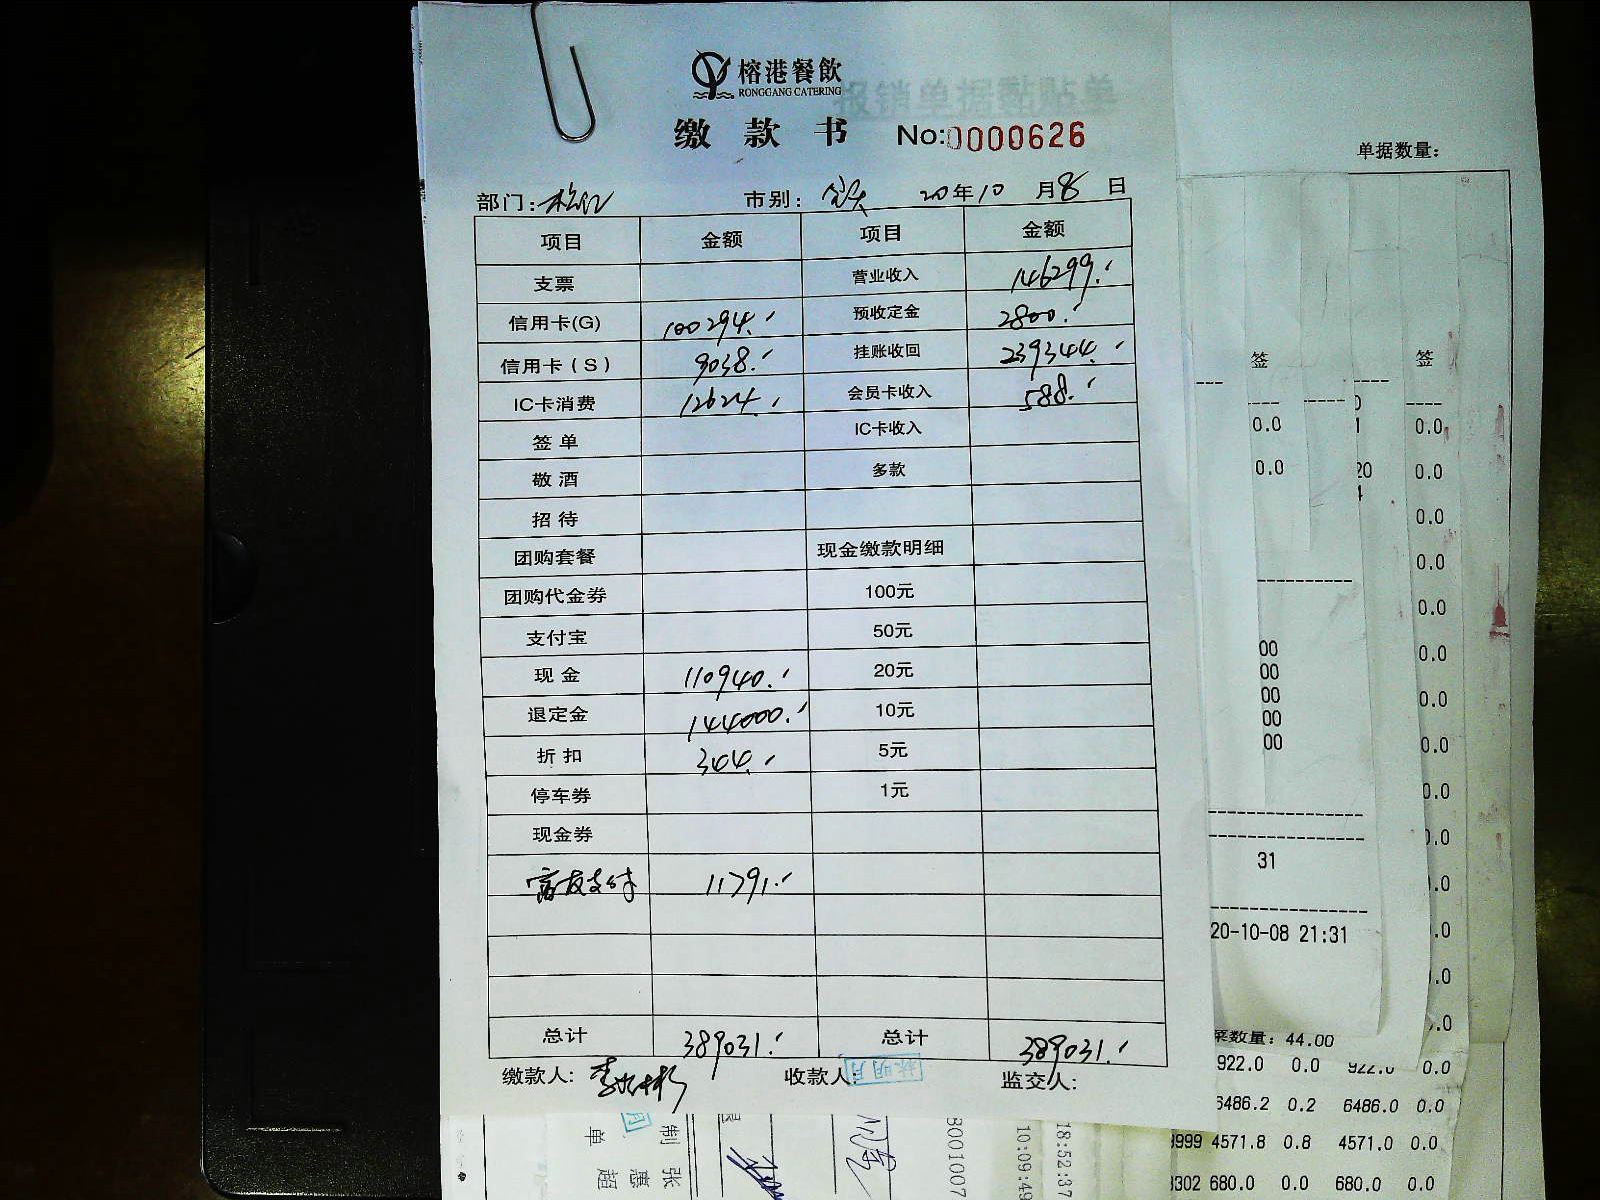 榕港餐飲
RONGGANG CATERING
报销单据黏贴单
缴 款 书 No:0000626
单据数量：
部门：松江 市别： 20年10月8日
项目 金额 项目 金额
支票 营业收入 146299.-
信用卡(G) 100294.- 预收定金 2800.-
信用卡(S) 9038.- 挂账收回 239344.-
IC卡消费 12624.- 会员卡收入 588.-
签单 IC卡收入
敬酒 多款
招待
团购套餐 现金缴款明细
团购代金券 100元
支付宝 50元
现金 110940.- 20元
退定金 144000.- 10元
折扣 344.- 5元
停车券 1元
现金券
富友支付 11791.-
总计 389031.- 总计 389031.-
缴款人： 收款人：林明月 监交人：
签 签
0.0 0.0
0.0 20 0.0
0.0
0.0
0.0
00 0.0
00
00 0.0
00
00 0.0
31
20-10-08 21:31
菜数量：44.00
922.0 0.0 922.0 0.0
6486.2 0.2 6486.0 0.0
3999 4571.8 0.8 4571.0 0.0
3302 680.0 0.0 680.0 0.0
制单 张惠超
8001007
10:09:49
18:52:37